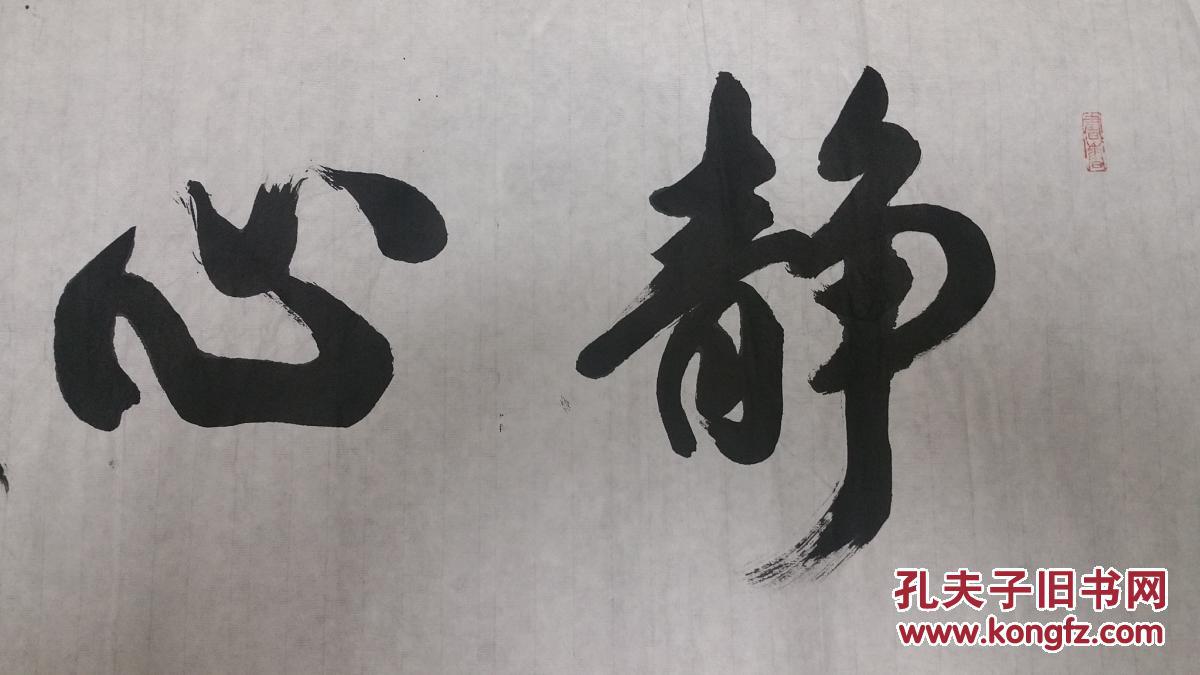 静心
孔夫子旧书网
www.kongfz.com